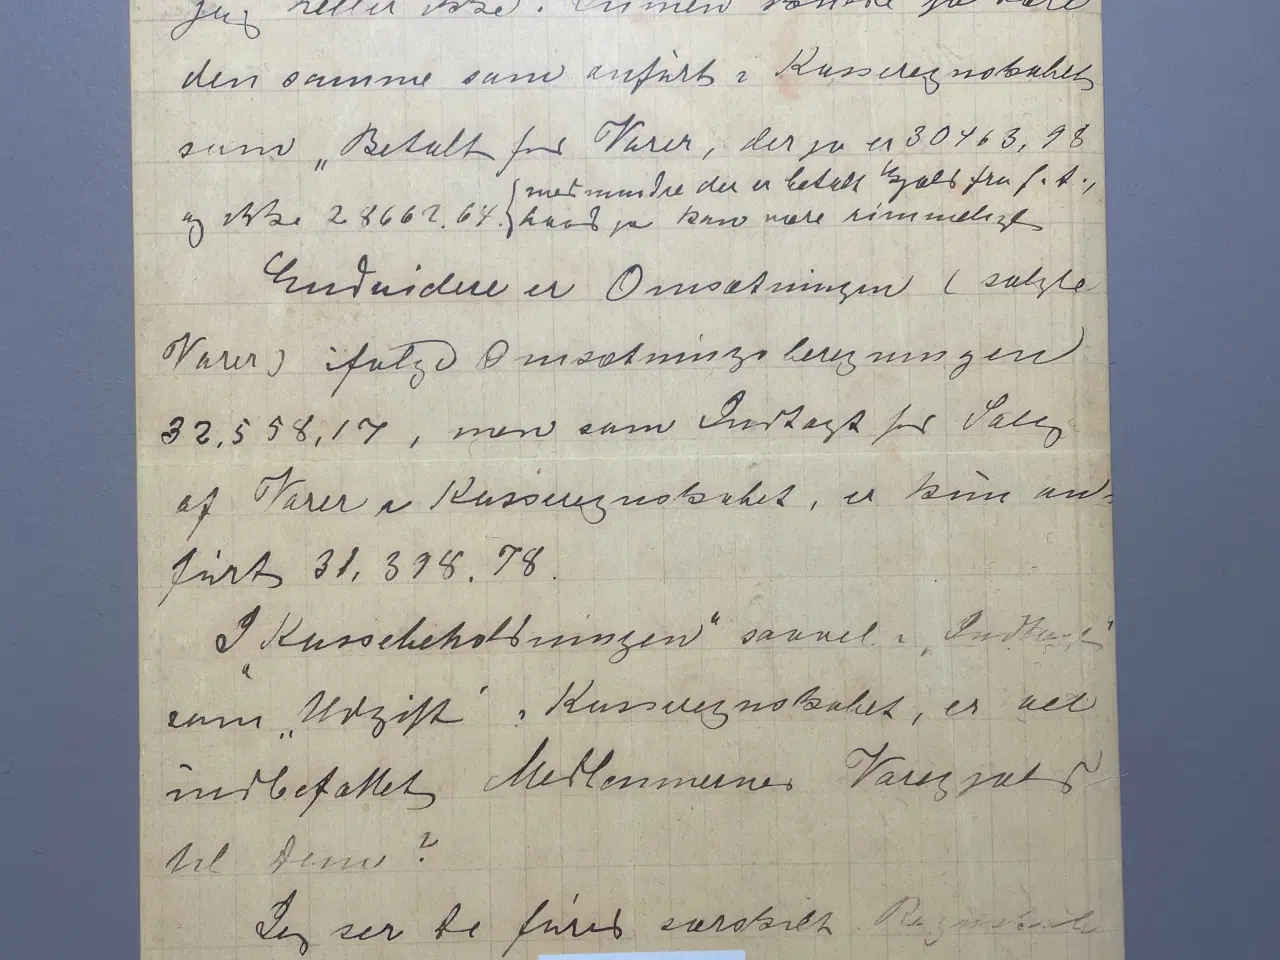 jeg heller ikke. Summen skulde jo være
den samme som anført i Kasseregnskabet
som „Betalt for Varer, der jo er 30463,98
og ikke 28662.64. {medmindre der er betalt Gjæld fra f. A.,
hvad jo kan være rimmeligt
Endvidere er Omsætningen (solgte
Varer) ifølge Omsætningsberegningen
32,558,17, men som Indtægt for Salg
af Varer i Kasseregnskabet, er kun an=
ført 31,398.78.
I „Kassebeholdningen" saavel i „Indtægt"
som „Udgift" i Kasseregnskabet, er vel
indbefattet Medlemmernes Varegjæld
til Dem?
Jeg ser De fører særskilt Regnskab